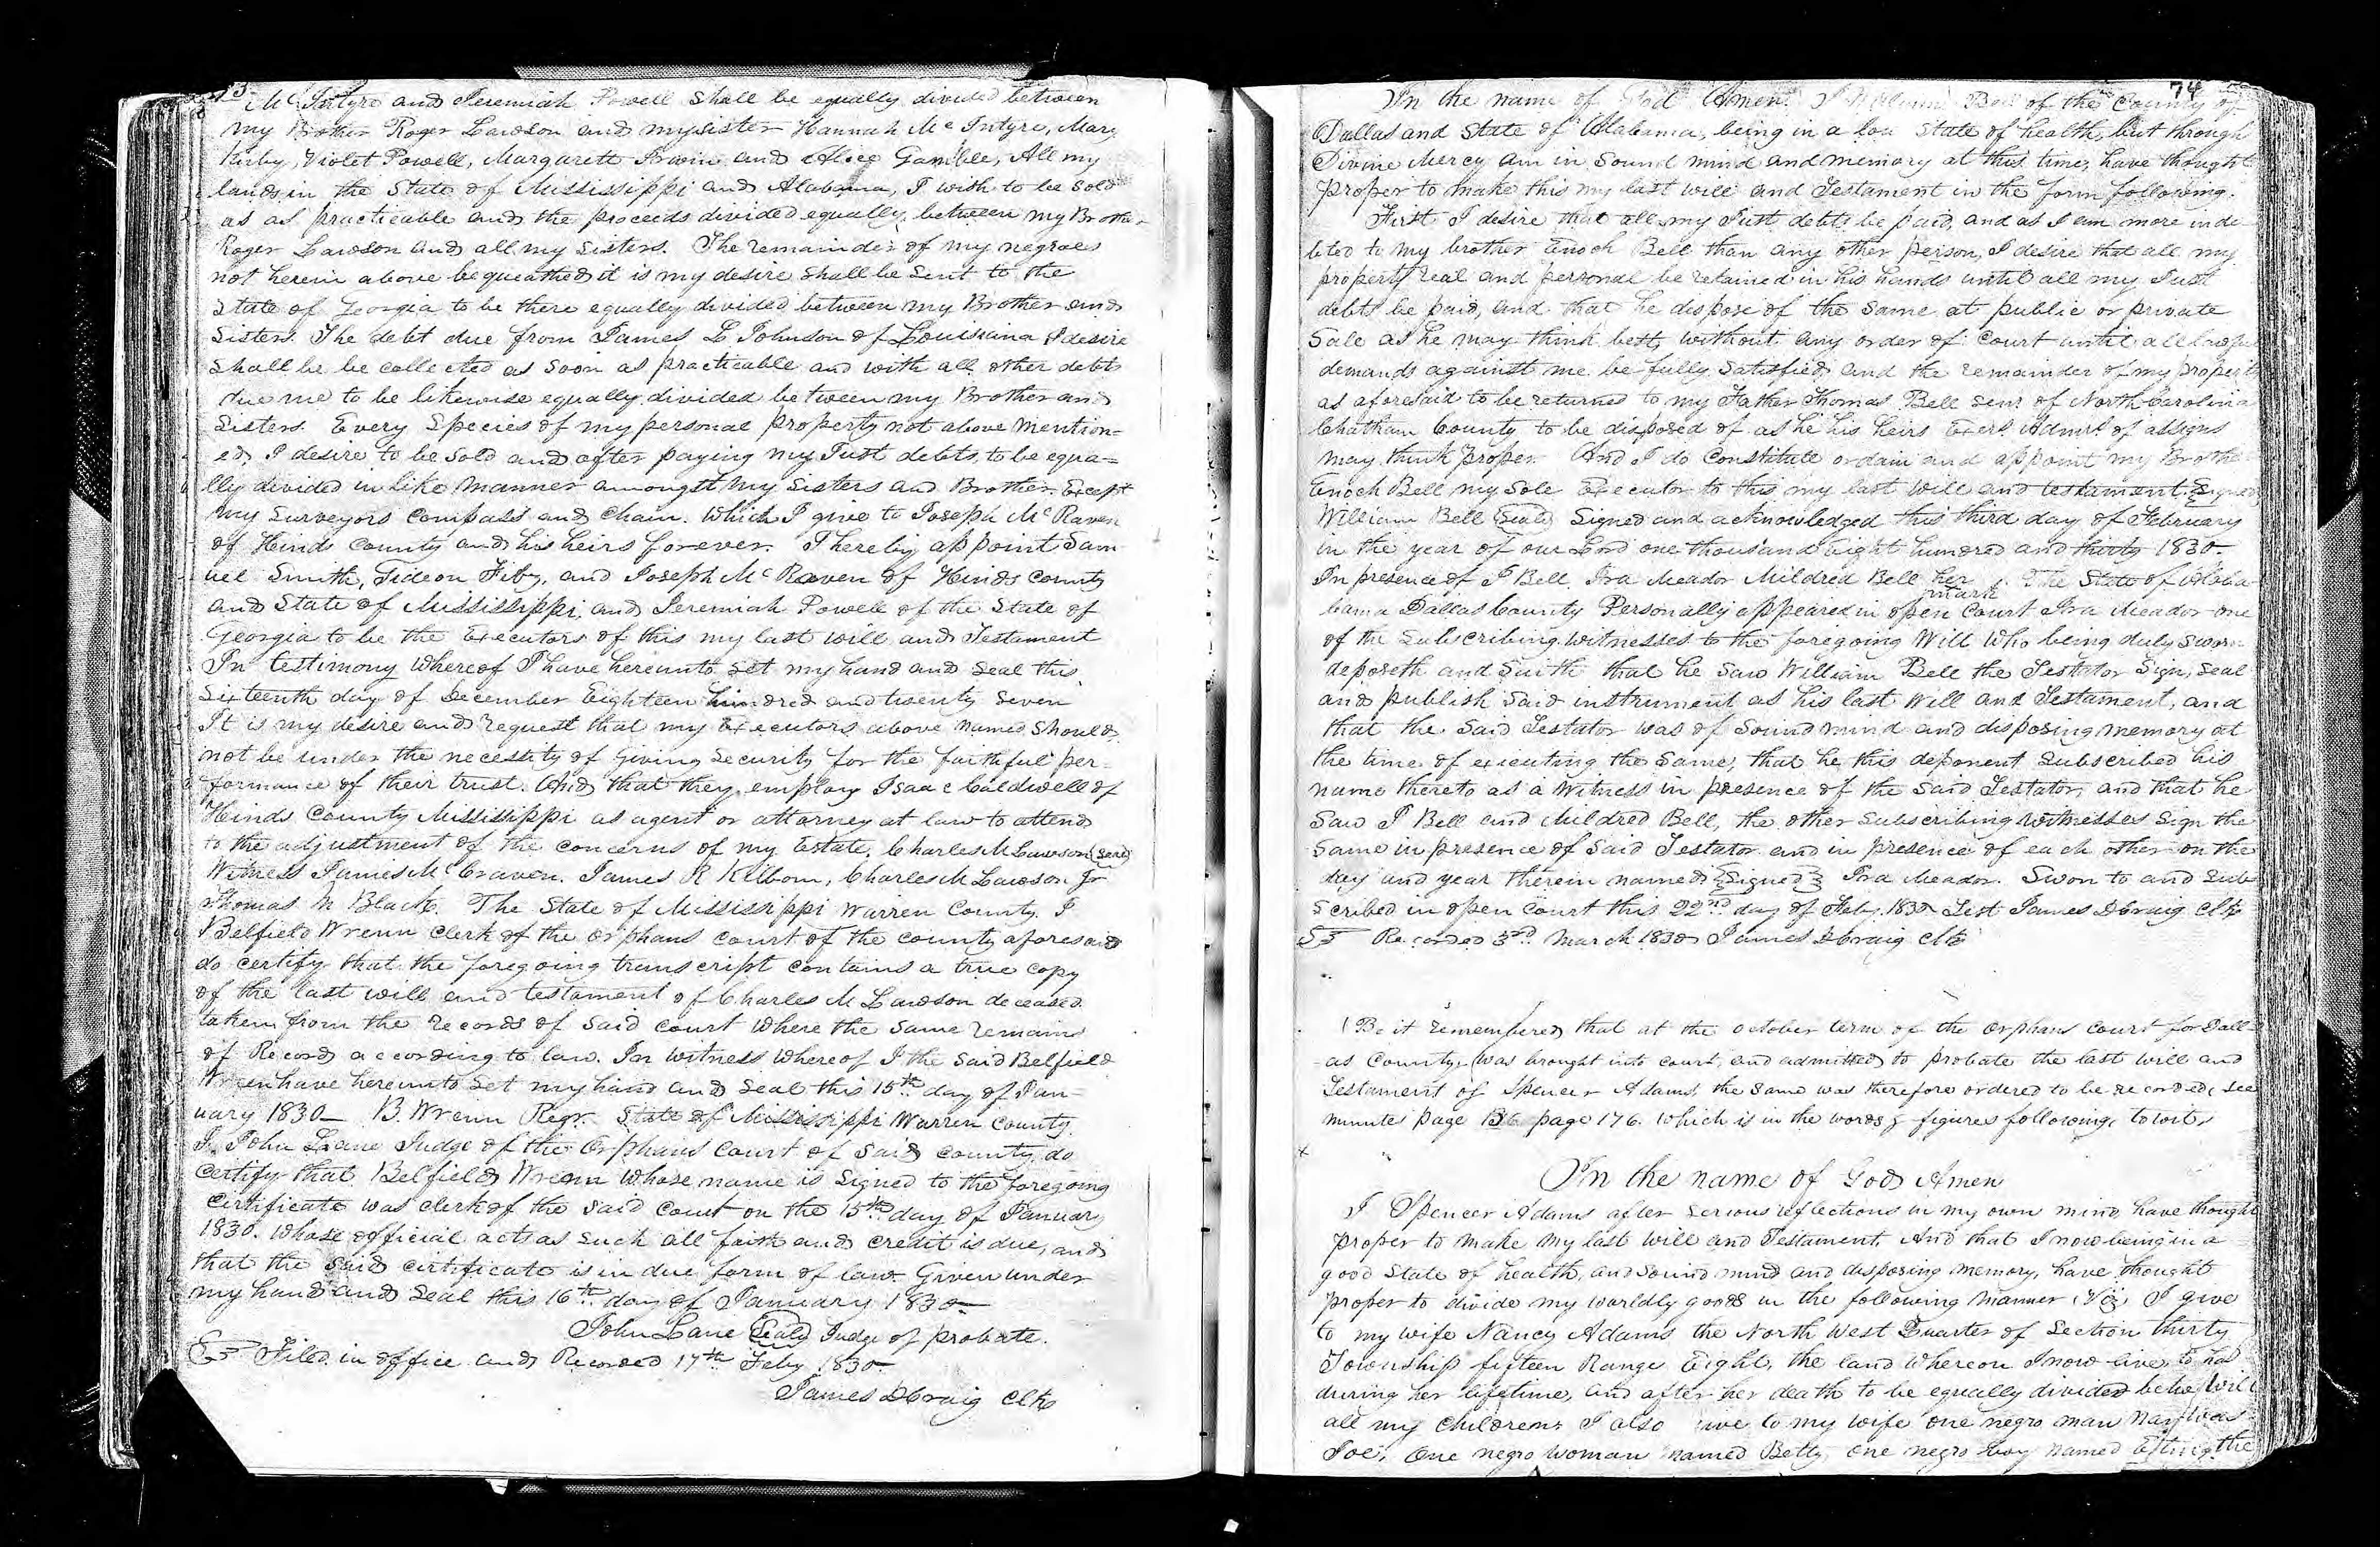 73
McIntyre and Jeremiah Powell shall be equally divided between
my Brother Roger Lawson and my sister Hannah Mc Intyre, Mary
Kirby, Violet Powell, Margarett Irwin and Alice Gamble, All my
lands in the State of Mississippi and Alabama, I wish to be sold
as as practicable and the proceeds divided equally between my Brother
Roger Lawson and all my sisters. The remainder of my negroes
not herein above bequeathed it is my desire shall be sent to the
State of Georgia to be there equally divided between my Brother and
Sisters. The debt due from James L Johnson of Louisiana I desire
shall be be collected as soon as practicable and with all other debts
due me to be likewise equally divided between my Brother and
Sisters. Every Species of my personal property not above mention=
ed, I desire to be sold and after paying my Just debts to be equa=
lly divided in like manner amongst my Sisters and Brother Except
my Surveyors Compass and Chain. Which I give to Joseph McRaven
of Hinds County and his heirs forever. I hereby appoint Sam
uel Smith, Gideon Fitz, and Joseph McRaven of Hinds County
and State of Mississippi and Jeremiah Powell of the State of
Georgia to be the Executors of this my last will and Testament
In testimony whereof I have hereunto set my hand and seal this
Sixteenth day of December Eighteen hundred and twenty seven
It is my desire and request that my Executors above named should
not be under the necessity of giving security for the faithful per=
formance of their trust. And that they employ Isaac Caldwell of
Hinds County Mississippi as agent or attorney at law to attend
to the adjustment of the concerns of my Estate. Charles M Lawson (Seal)
Witness James McCraven. James R Kilborn, Charles M Lawson Jr
Thomas M Black. The State of Mississippi Warren County. I
Belfield Wrenn Clerk of the Orphans Court of the county aforesaid
do certify that the foregoing transcript contains a true copy
of the last will and testament of Charles M Lawson deceased
taken from the records of said court where the same remains
of Record according to law. In witness whereof I the said Belfield
Wrenn have hereunto set my hand and seal this 15th day of Jan=
uary 1830 B. Wrenn Regr. State of Mississippi Warren County.
I John Lane Judge of the Orphans Court of said county do
certify that Belfield Wrenn whose name is signed to the foregoing
certificate was clerk of the said court on the 15th day of January
1830. whose official acts as such all faith and credit is due, and
that the said certificate is in due form of law. Given under
my hand and seal this 16th day of January 1830
John Lane (Seal) Judge of probate.
Filed in office and Recorded 17th Feby 1830
James D Craig Clk
74
In the name of God Amen. I William Bell of the County of
Dallas and State of Alabama, being in a low State of health, but through
Divine Mercy am in sound mind and memory at this time, have thought
proper to make this my last will and Testament in the form following.
First I desire that all my Just debts be paid, and as I am more inde
bted to my brother Enoch Bell than any other person, I desire that all my
property real and personal be retained in his hands until all my Just
debts be paid, and that he dispose of the same at public or private
Sale as he may think best, without any order of Court until all
demands against me be fully satisfied and the remainder of my property
as aforesaid to be returned to my Father Thomas Bell Senr of North Carolina
Chatham County to be disposed of as he his heirs Exers Admrs of assigns
may think proper. And I do Constitute ordain and appoint my Brothe
Enoch Bell my Sole Executor to this my last will and testament. Signed
William Bell (Seal) Signed and acknowledged this third day of February
in the year of our Lord one thousand Eight hundred and thirty 1830
In presence of J Bell, Ira Meador Mildred Bell her mark. The State of Alaba
bama Dallas County Personally appeared in open Court Ira Meador one
of the Subscribing witnesses to the foregoing Will who being duly sworn
deposeth and saith that he saw William Bell the Testator Sign, seal
and publish said instrument as his last Will and Testament, and
that the said Testator was of sound mind and disposing memory at
the time of executing the same, that he this deponent subscribed his
name thereto as a Witness in presence of the said Testator, and that he
Saw J Bell and Mildred Bell, the other subscribing witnesses sign the
same in presence of said Testator and in presence of each other on the
day and year therein named {Signed} Ira Meador. Swon to and Sub
scribed in open Court this 22nd day of Feby 1830 Test James D Craig Clk
Recorded 3rd March 1830 James D Craig Clk
Be it remembered that at the october term of the orphans court for Dall
as County, was brought into court, and admitted to probate the last will and
Testament of Spencer Adams, the same was therefore ordered to be recorded, see
minute page page 176. Which is in the words & figures following, towit,
In the name of God Amen
I Spencer Adams after serious reflections in my own mind have thought
proper to make my last will and Testament. And that I now being in a
good State of health, and sound mind and disposing memory, have thought
proper to divide my worldly goods in the following manner, Viz, I give
to my wife Nancy Adams the North West Quarter of Section thirty
Township fifteen Range Eight, the land whereon I now live, to
during her lifetime, and after her death to be equally divided
all my children. I also give to my wife one negro man
Joe, One negro woman named Betty, one negro boy named